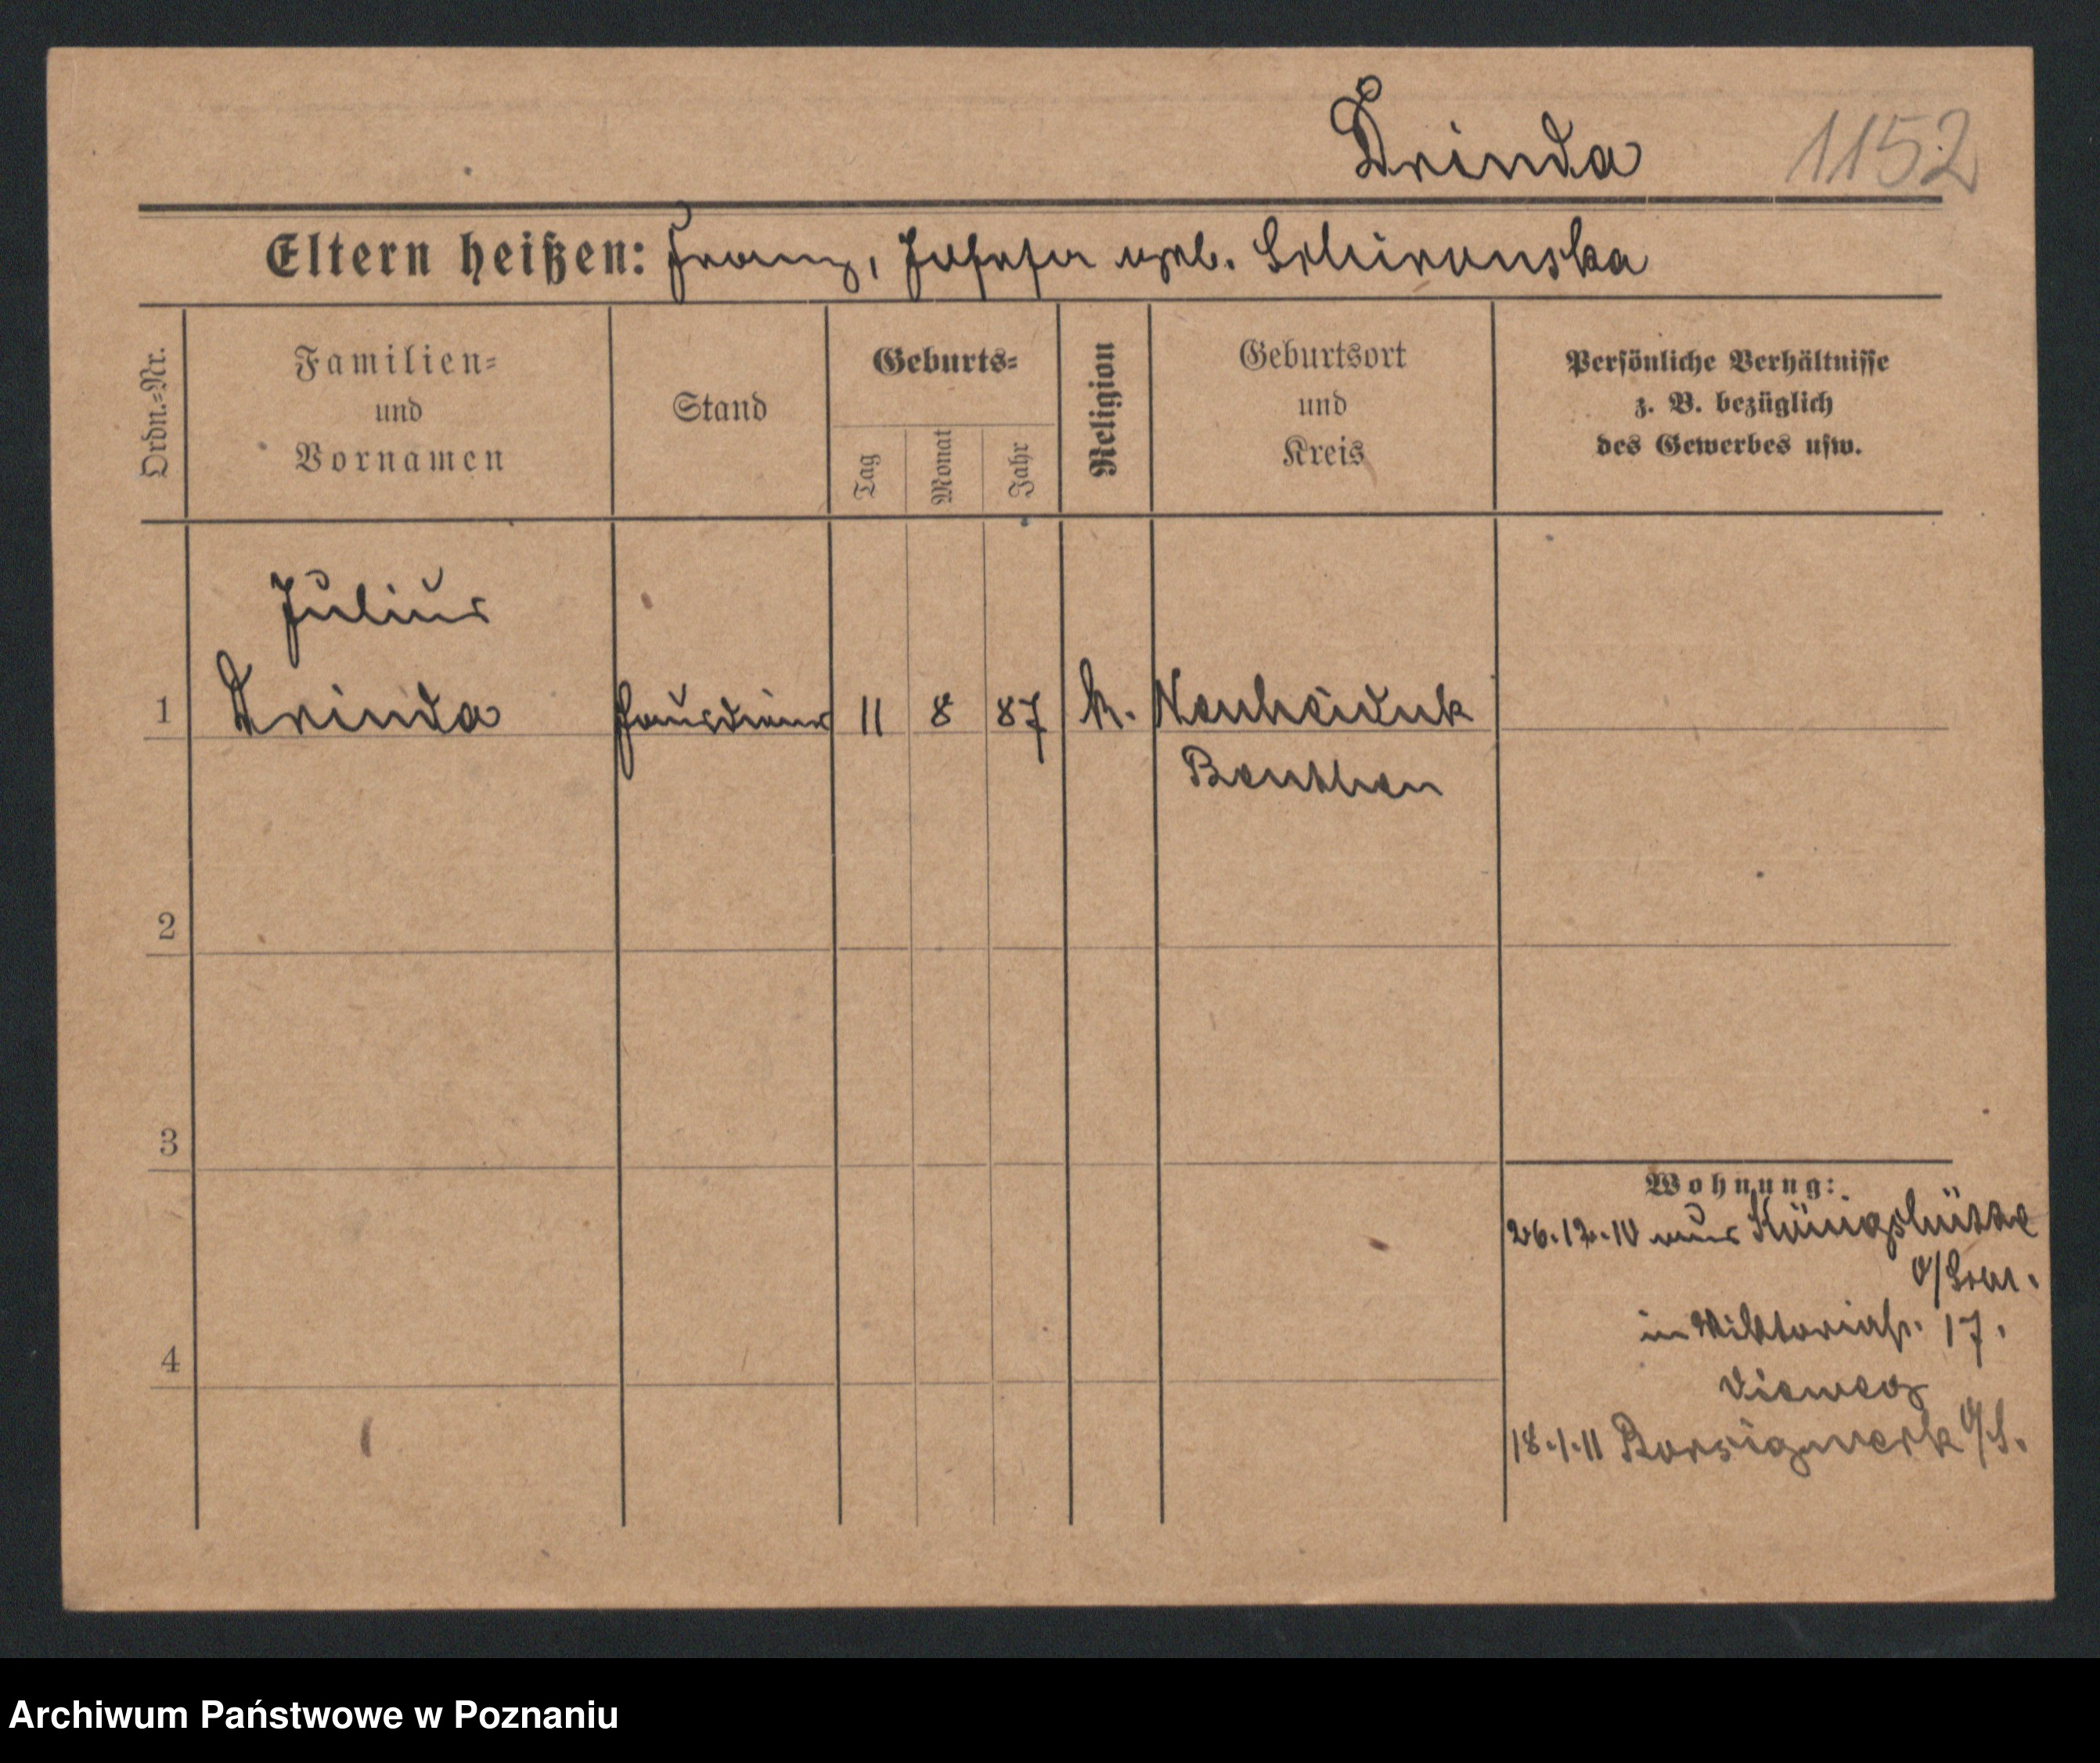 Drinda 1152
Eltern heißen: Franz, Josefa geb. Schironska
Ordn.=Nr.
Familien=
und
Vornamen
Stand
Geburts=
Tag
Monat
Jahr
Religion
Geburtsort
und
Kreis
Persönliche Verhältnisse
z. B. bezüglich
des Gewerbes usw.
Julius
1 Drinda Hausdiener 11 8 87 k. Neuheiduk
Beuthen
2
3
4
Wohnung:
26.12.10 aus Königshütte
in Viktoriastr. 17.
Vieweg
18.1.11 Borsigwerk O/S.
Archiwum Państwowe w Poznaniu